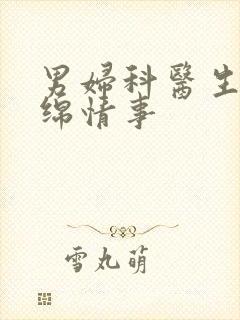 男婦科醫生
绵情事
雪丸萌